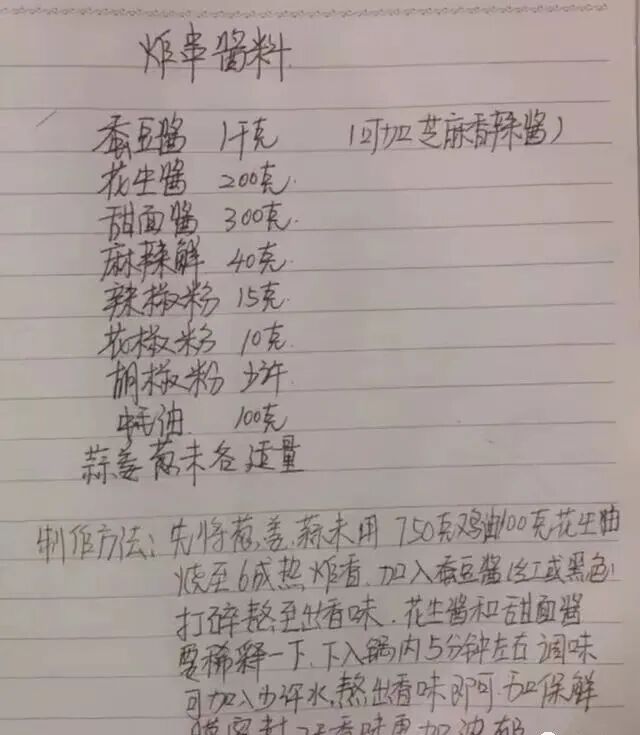 炸串酱料
蚕豆酱 1千克 (可加芝麻香辣酱)
花生酱 200克.
甜面酱 300克.
麻辣鲜 40克.
辣椒粉 15克.
花椒粉 10克.
胡椒粉 少许
蚝油. 100克
蒜姜葱末各适量
制作方法:先将葱.姜.蒜末用 750克鸡油100克花生油
烧至6成热炸香.加入蚕豆酱(红或黑色)
打碎熬至出香味.花生酱和甜面酱
要稀释一下.下入锅内5分钟左右 调味
可加入少许水,熬出香味即可.加保鲜
膜密封 香味更加浓郁